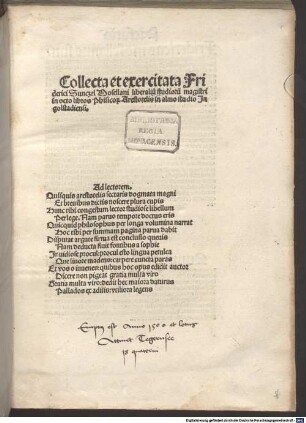 Collecta et exercitata Fri
derici Sunczel Mosellani liberaliũ studiorũ magistri
in octo libros Phisicoꝝ Arestotelis in almo studio In
golstadiensi.
BIBLIOTHECA
REGIA
MONACENSIS.
Ad lectorem.
Quisquis arestotelis sectaris dogmata magni
Et breuibus dictis noscere plura cupis
Hunc tibi congestum lector studiose libellum
Perlege. Nam paruo tempore doctus eris
Quicquid philosophus per longa volumina narrat
Hoc tibi per summam pagina parua dabit
Disputat argute firma est conclusio queuis
Nam deducta fluit fontibus a sophie
Inuidiose procul procul esto lingua petulca
Que liuore madens carpere cuncta paras
Et vos o iuuenes quibus hoc opus edidit auctor
Dicere non pigeat gratia multa viro
Gratia multa viro: dedit hec maiora daturus
Pallados
legens
Emptus est Anno 1500